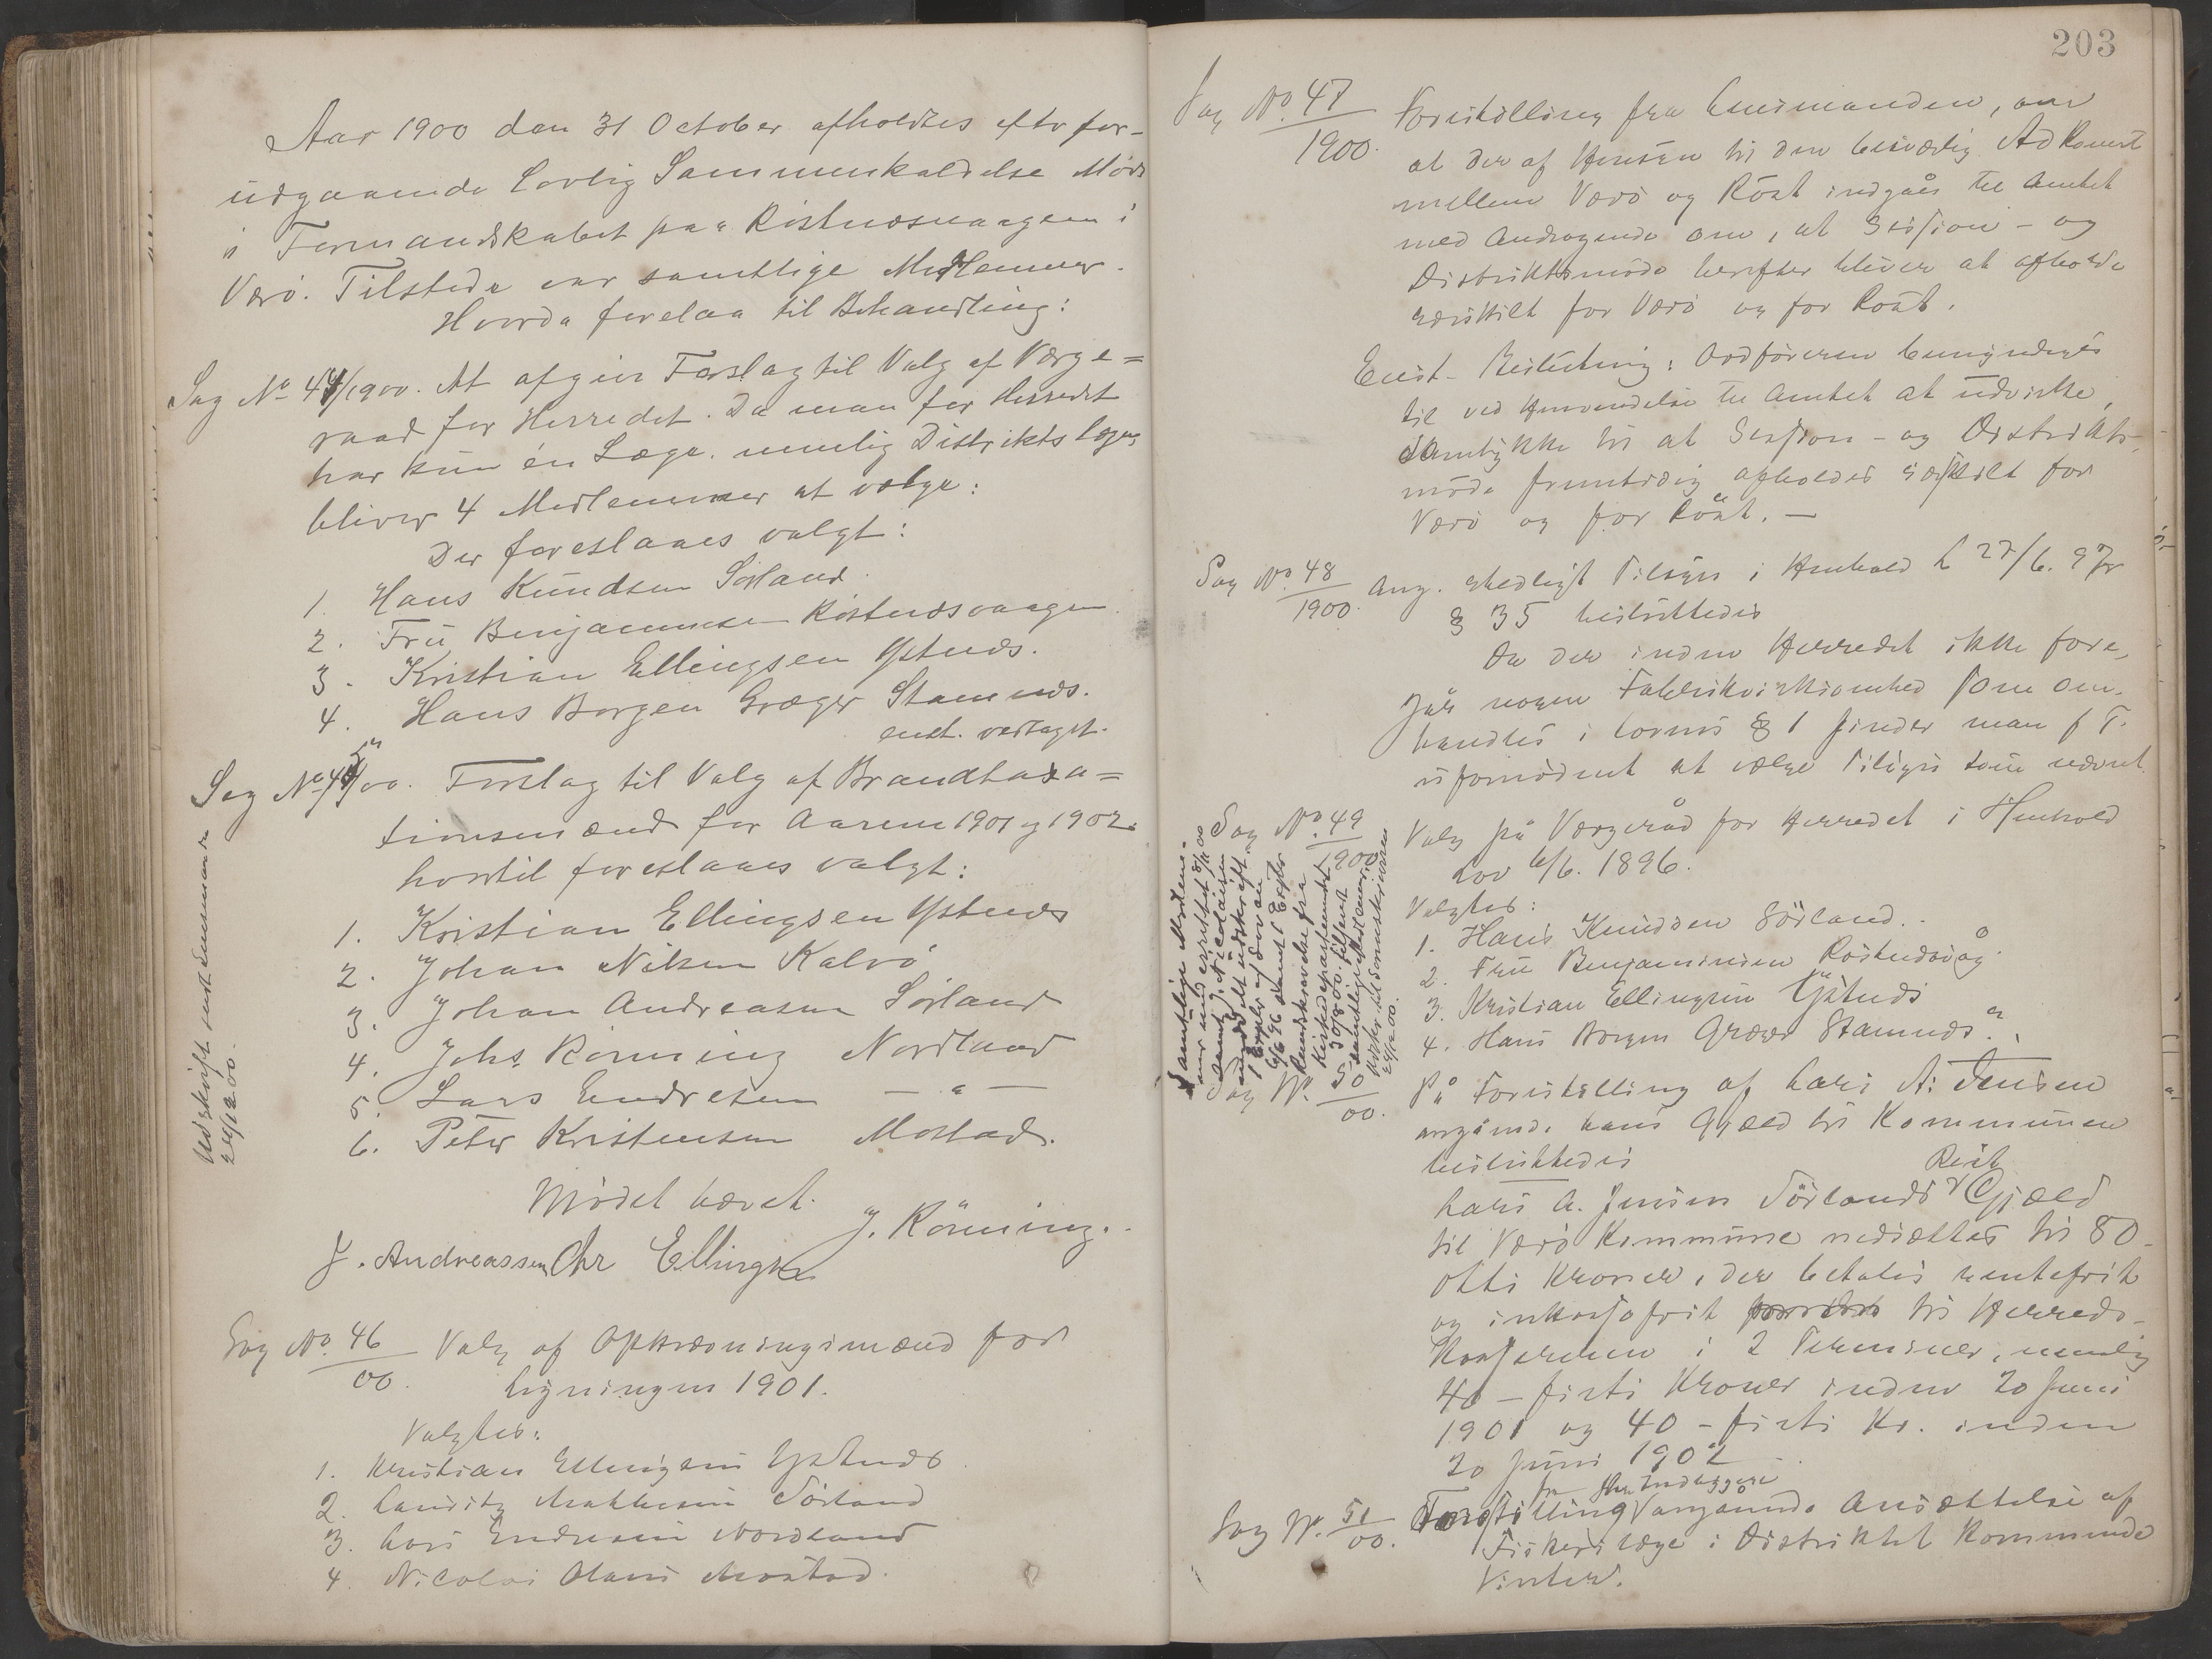 Aar 1900 den 31 October afholdtes efter for-
udgaaende Lovlig Sammenkaldelse Møde
i Formandskabet paa Røstnæsvaagen i
Værö. Tilstede var samtlige Medlemmer.
Hvorda forelaa til Behandling:
Sag No 44/1900. At afgive Forslag til Valg af Værge=
raad for Herredet. Da man for Herredet
har kun én Læge, nemlig Distriktslægen
bliver 4 Medlemmer at vælge:
Der foreslaaes valgt:
1. Hans Knudsen Sörland.
2. Fru Benjaminsen Røstnæsvaagen.
3. Kristian Ellingsen Ystnæs.
4. Hans Borgen Græger Stamnæs.
enst. vedtaget.
Sag No 45/00. Forslag til Valg af Brandtaxa=
tionsmænd for Aarene 1901 og 1902.
hvortil foreslaaes valgt:
1. Kristian Ellingsen Ystnæs
2. Johan Nilsen Kalvö
3. Johan Andreassen Sörland
4. Johs Rönning Nordland
5. Lars Endresen — " —
6. Peter Kristensen Mostad.
Udskrift sendt Lensmanden
24/12 00.
Mödet hævet.
J. Andreassen Chr Ellingsen J. Rönning.
Sag No. 46/00. Valg af Opkrævningsmænd for
Ligningen 1901.
Valgtes:
1. Kristian Ellingsen Ystnæs
2. Lauritz Mathisen Sörland
3. Lars Endresen Nordland
4. Nicolai Olaus Mostad.
203
Sag No. 47/1900. Forestilling fra Lensmanden, om
at der af Hensyn til den besværlig Adkomst
mellem Værö og Röst indgåes til Amtet
med Andragende om, at Session- og
Distriktsmöde herefter bliver at afholde
særskilt for Værö og for Röst.
Enst. Beslutning: Ordföreren bemyndiges
til ved Henvendelse til Amtet at udvirke
Samtykke til at Session- og Distrikts-
möde fremtidig afholdes særskilt for
Værö og for Röst. —
Sag No. 48/1900. Ang. stedligt Tilsyn i Henhold L 27/6. 92
§ 35 besluttedes
Da der inden Herredet ikke fore-
går nogen Fabrikvirksomhed som om-
handles i Lovens § 1 finder man f. T.
ufornödent at vælge Tilsyn som nævnt.
Sag No. 49/1900 Valg på Værgeråd for Herredet i Henhold
Lov 6/6. 1896.
Valgtes:
1. Hans Knudsen Sörland.
2. Fru Benjaminsen Röstnæsvåg.
3. Kristian Ellingsen Ystnæs
4. Hans Borgen Græger Stamnæs.
Samtlige Medlem-
mer underrettet 8/11 00
samt J. Nicolaisen
meddelt udskrift.
1 Expl. af Lov af
6/6 96 samt Expl.
Rundskrivelse fra
Kirkedepartementet
30/8 00. tilsendt
samtlige Medlemmer
24/12 00.
Sag No. 50/00. På Forestilling af Lars A. Jensen
angånde hans Gjæld til Kommunen
besluttedes
Lars A. Jensen Sörlands Rest Gjæld
til Værö Kommune nedsættes til 80 –
otti Kroner, der betales rentefrit
og inkassofrit til Herreds-
kassereren i 2 Terminer, nemlig
40 – firti Kroner inden 20 Juni
1901 og 40 – firti Kr. inden
20 Juni 1902
Sag No. 51/00. Forestilling fra Indbyggere angaaende Ansættelse af
Fiskerilæge i Distriktet kommende
Vinter.